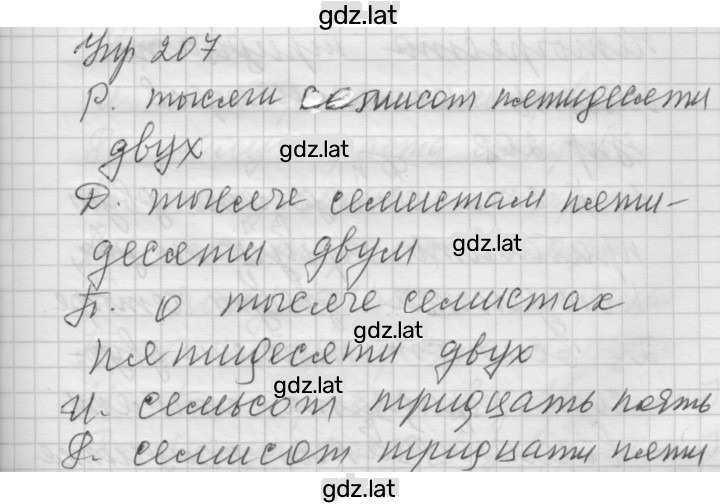 gdz.lat
Упр 207
Р. тысячи семисот пятидесяти
двух gdz.lat
Д. тысяче семистам пяти-
десяти двум gdz.lat
П. о тысяче семистах
gdz.lat
пятидесяти двух
gdz.lat
И. семьсот тридцать пять
Р. семисот тридцати пяти
gdz.lat
gdz.lat